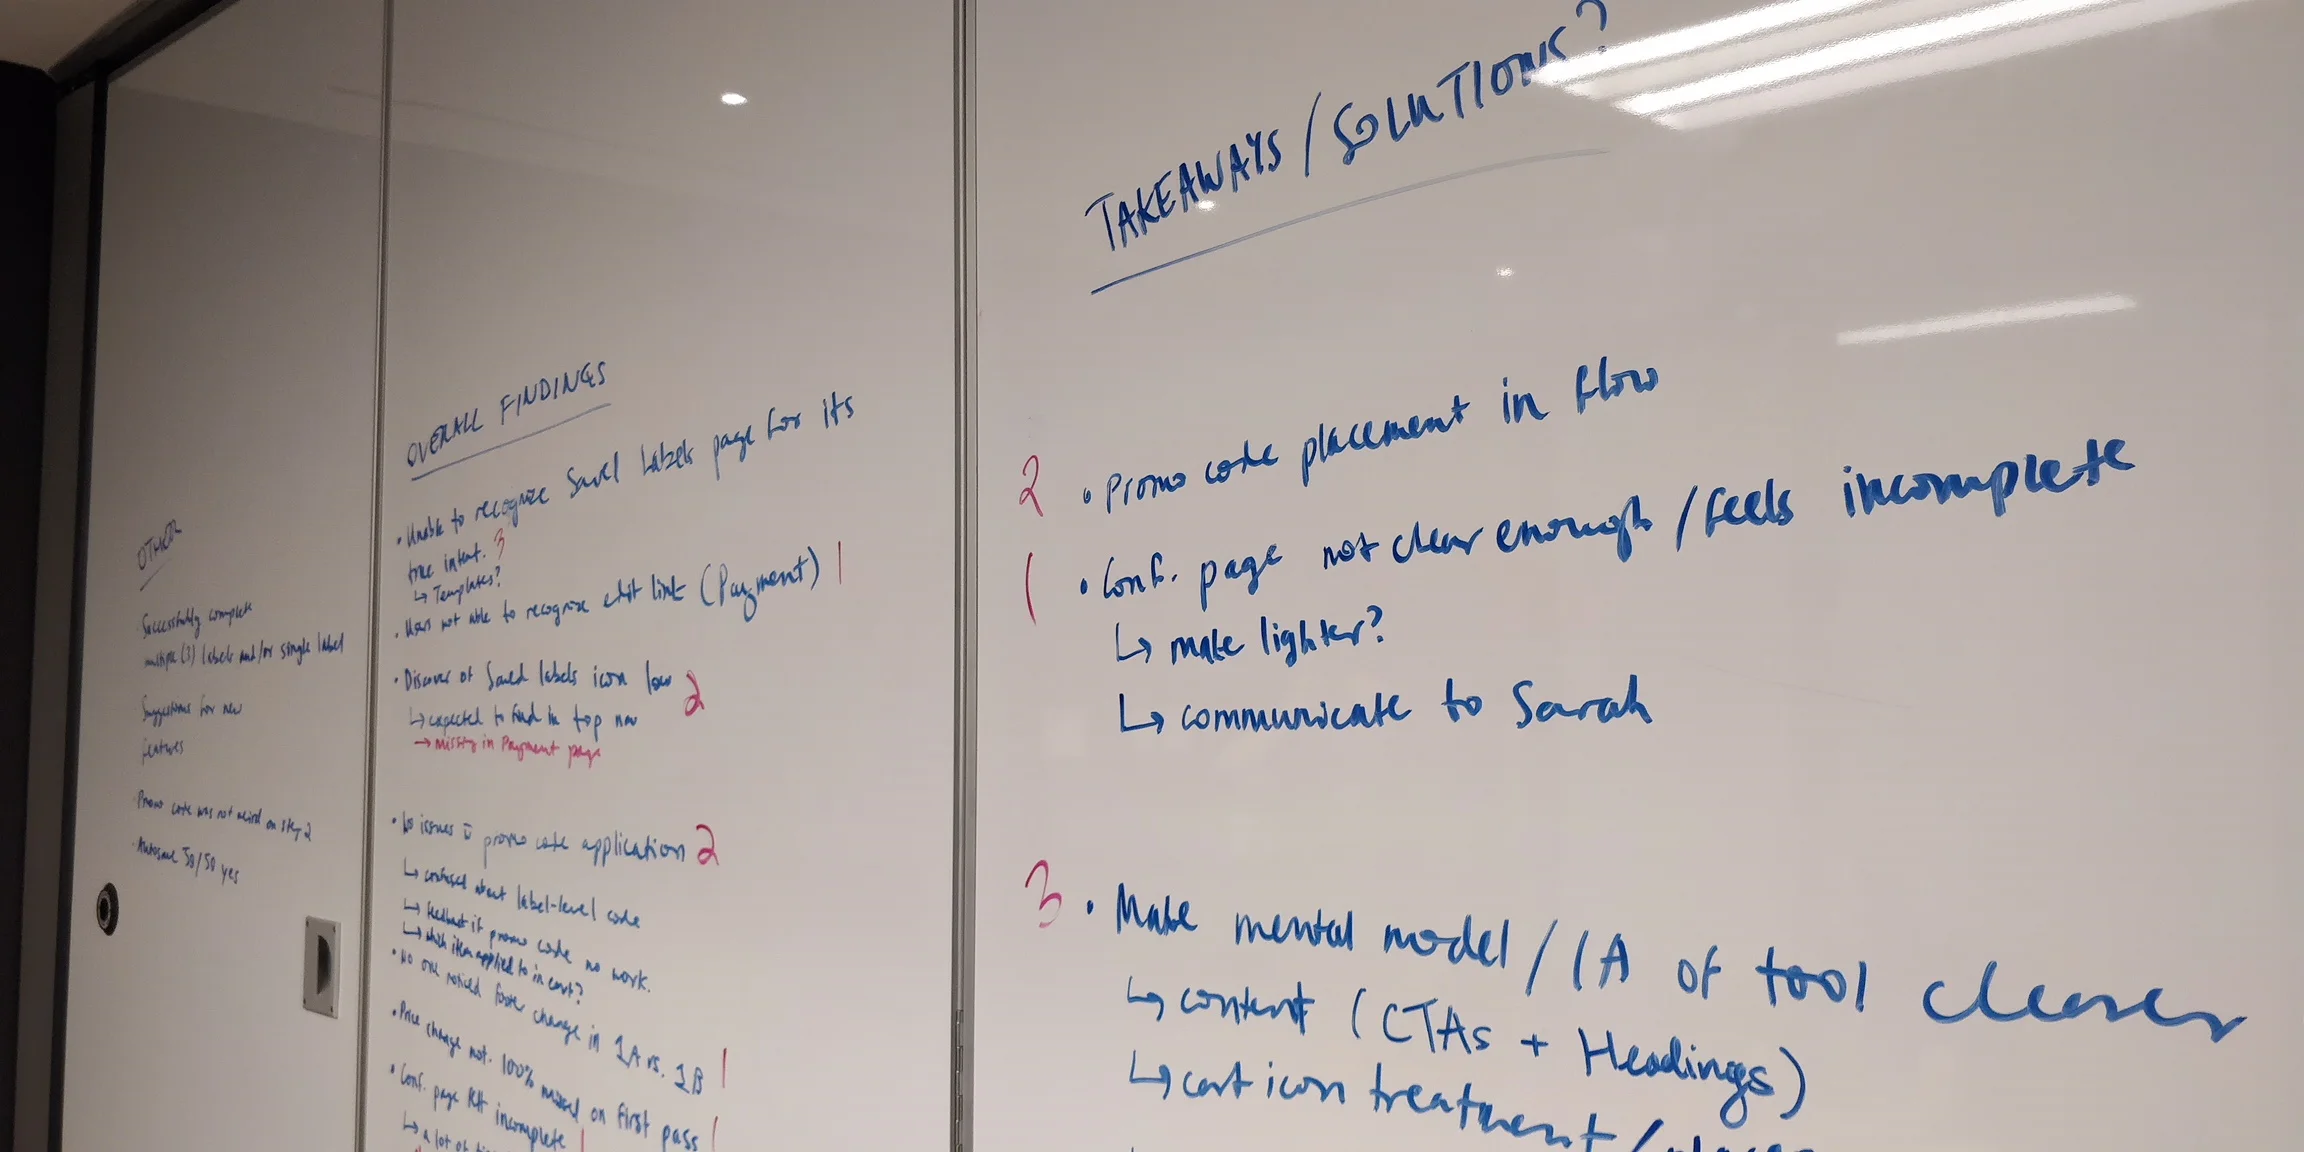 OTHER
· Successfully complete
multiple (3) labels and/or single label
· Suggestions for new
features
· Promo code was not weird on step 2
· Autosave 50/50 yes
OVERALL FINDINGS
· Unable to recognize Saved Labels page for its
true intent. 3
↳ Templates?
· Users not able to recognize edit link (Payment) 1
· Discover of Saved labels icon low 2
↳ expected to find in top nav
→ missing in Payment page
· No issues promo code application 2
↳ confused about label-level code
↳ feedback if promo code no work.
↳ which item applied to in cart?
· No one noticed footer change in 1A vs. 1B 1
· Price change not. 100% missed on first pass 1
· Conf. page felt incomplete 1
↳ a lot of
TAKEAWAYS / SOLUTIONS?
2 · Promo code placement in flow
1 · Conf. page not clear enough / feels incomplete
↳ make lighter?
↳ communicate to Sarah
3 · Make mental model / IA of tool clearer
↳ content (CTAs + Headings)
↳ cart icon treatment /